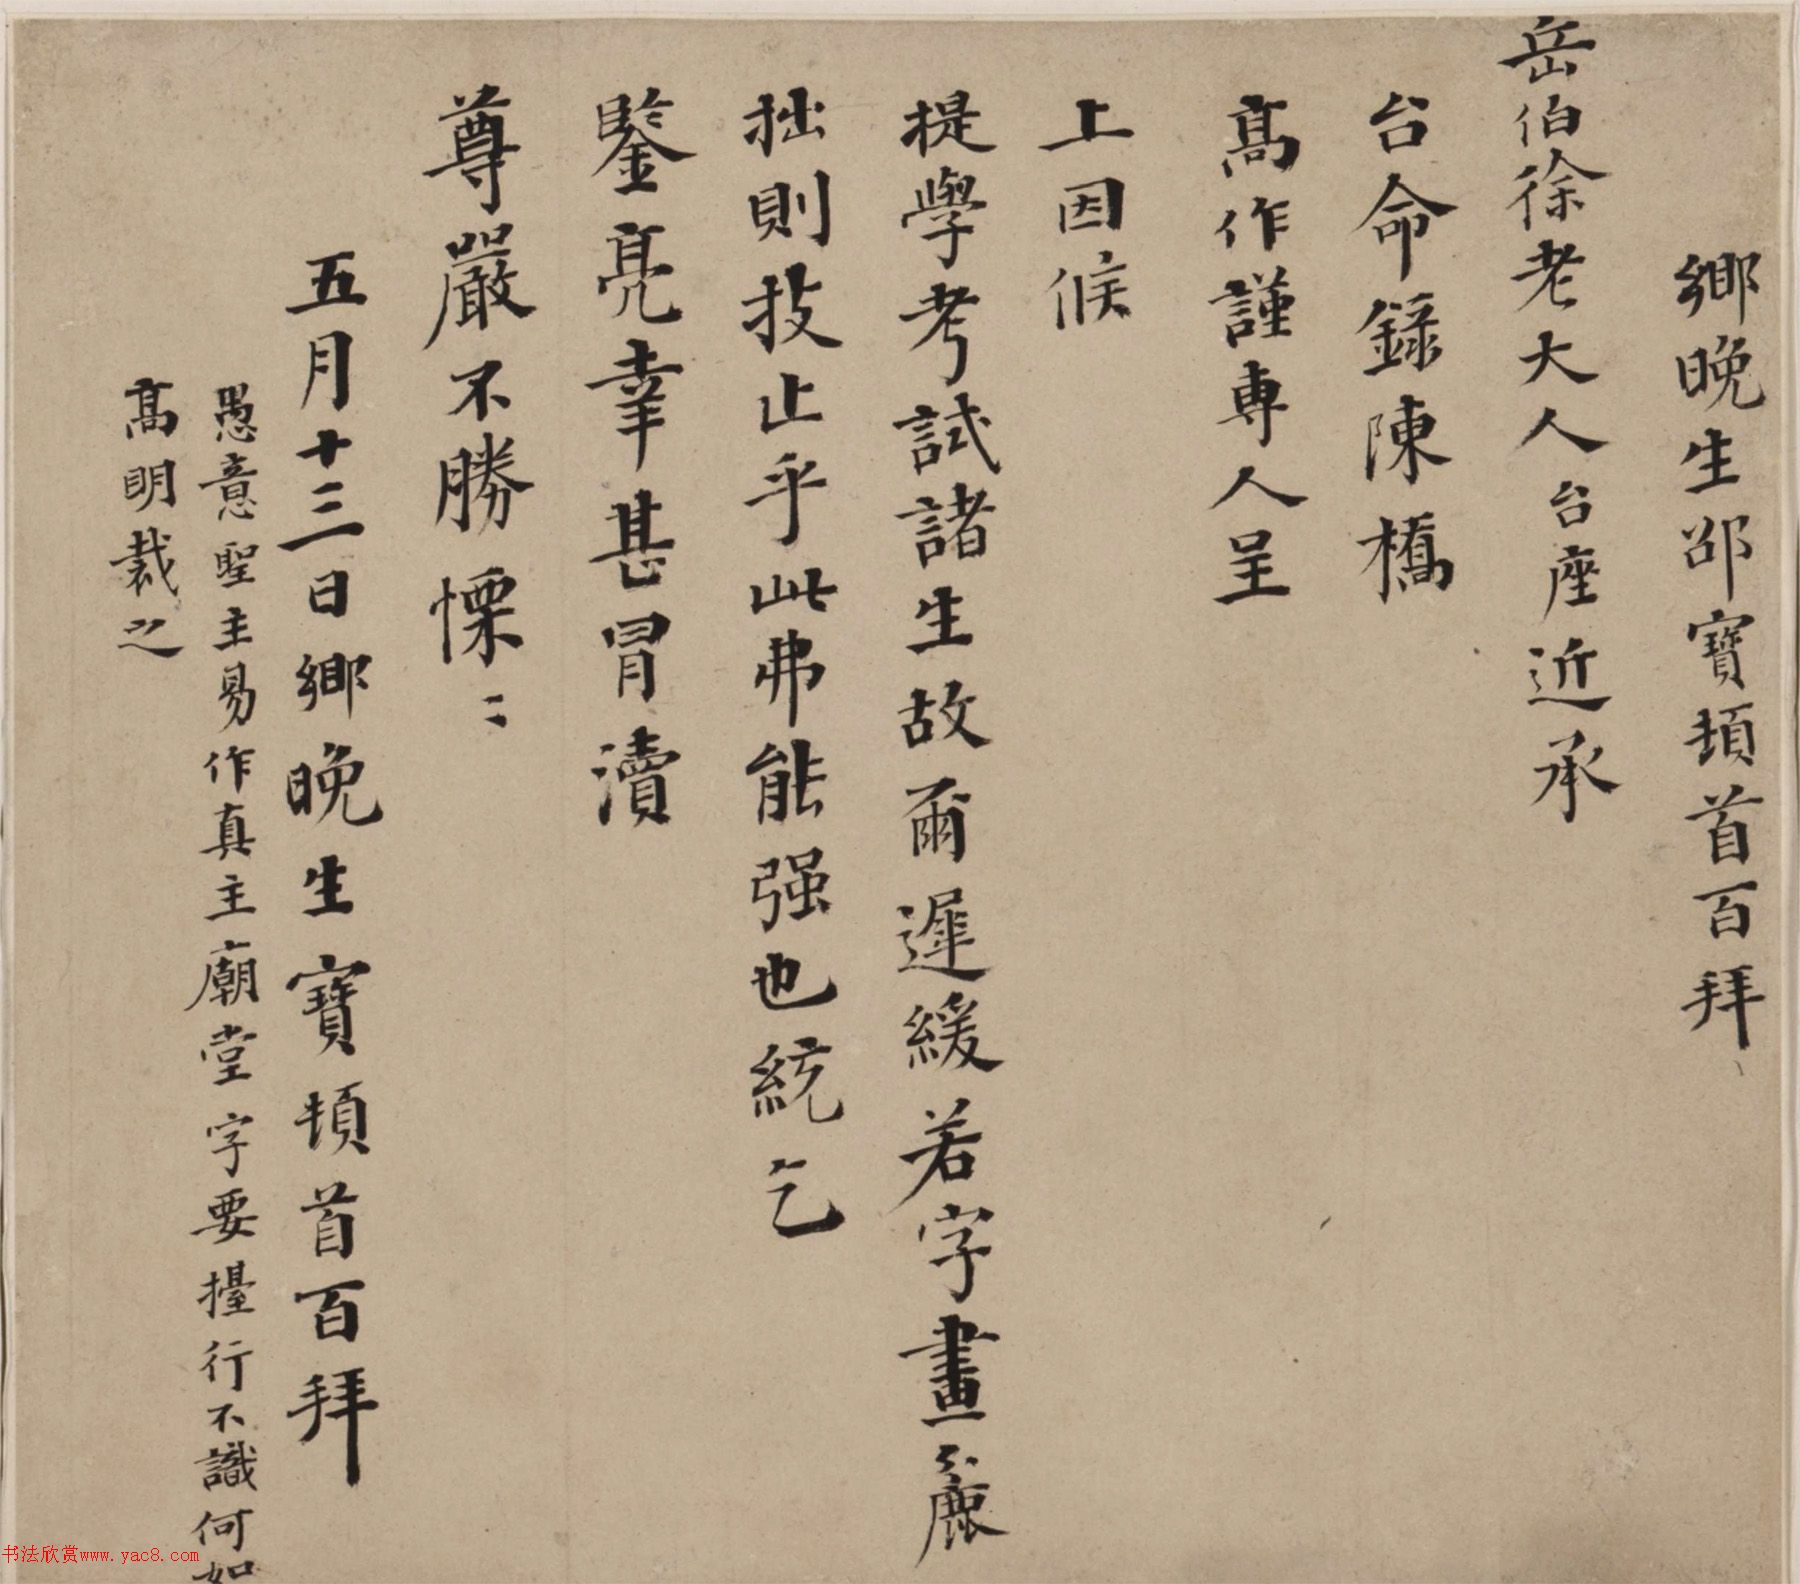 鄉晚生邵寶頓首百拜
岳伯徐老大人台座近承
台命錄陳橋
高作謹專人呈
上因候
提學考試諸生故爾遲緩若字畫麄
拙則技止乎此弗能强也統乞
鑒亮幸甚冒瀆
尊嚴不勝慄〻
五月十三日鄉晚生寶頓首百拜
愚意聖主易作真主廟堂字要擡行不識何如
高明裁之
书法欣赏www.yac8.com